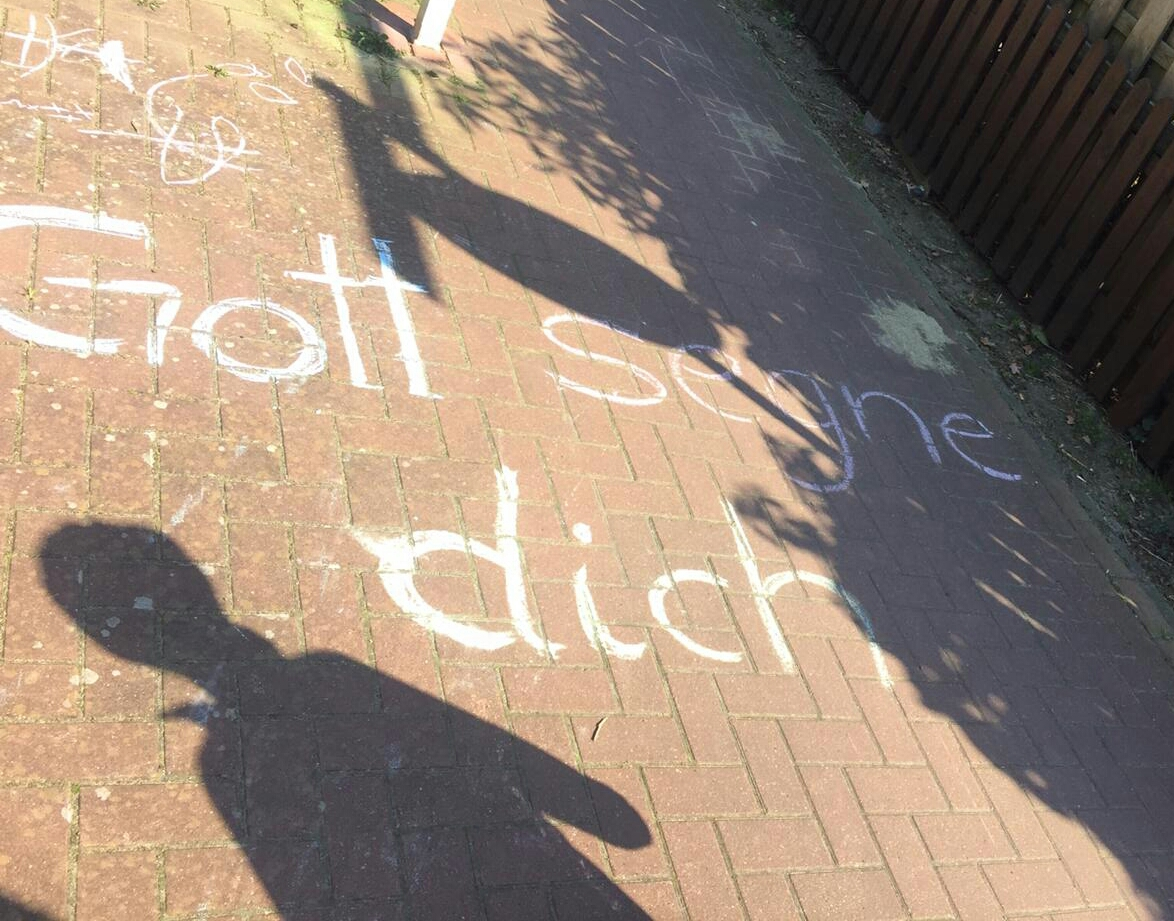 Gott segne
dich